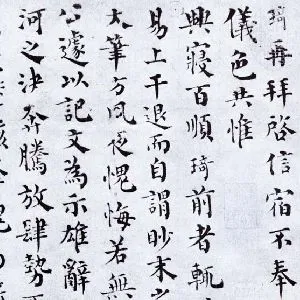 琦再拜啓信宿不奉
儀色共惟
興寢百順琦前者輒
易上干退而自謂眇末
大筆方夙夜愧悔若無
公遽以記文為示雄辭
河之決奔騰放肆勢